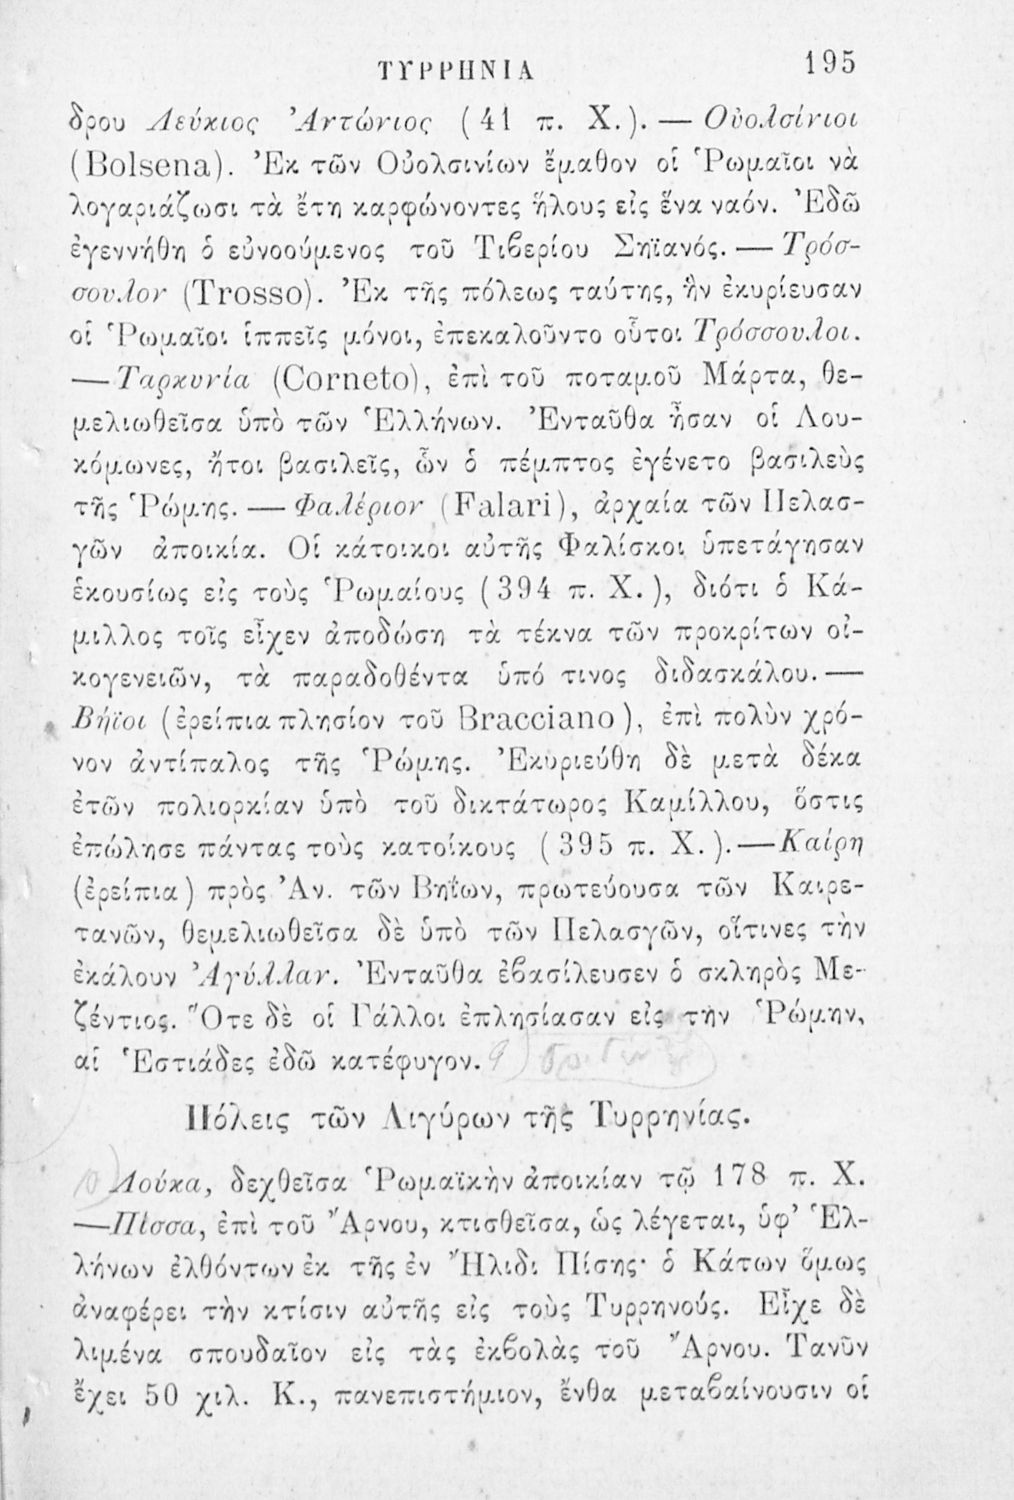 ΤΥΡΡΗΝΙΑ 195
δρου Λεύκιος Ἀντώνιος (41 π. Χ.). — Οὐολσίνιοι
(Bolsena). Ἐκ τῶν Οὐολσινίων ἔμαθον οἱ Ῥωμαῖοι νὰ
λογαριάζωσι τὰ ἔτη καρφώνοντες ἥλους εἰς ἕνα ναόν. Ἐδῶ
ἐγεννήθη ὁ εὐνοούμενος τοῦ Τιβερίου Σηϊανός. — Τρόσ-
σουλον (Trosso). Ἐκ τῆς πόλεως ταύτης, ἣν ἐκυρίευσαν
οἱ Ῥωμαῖοι ἱππεῖς μόνοι, ἐπεκαλοῦντο οὗτοι Τρόσσουλοι.
— Ταρκυνία (Corneto), ἐπὶ τοῦ ποταμοῦ Μάρτα, θε-
μελιωθεῖσα ὑπὸ τῶν Ἑλλήνων. Ἐνταῦθα ἦσαν οἱ Λου-
κόμωνες, ἤτοι βασιλεῖς, ὧν ὁ πέμπτος ἐγένετο βασιλεὺς
τῆς Ῥώμης. — Φαλέριον (Falari), ἀρχαία τῶν Πελασ-
γῶν ἀποικία. Οἱ κάτοικοι αὐτῆς Φαλίσκοι ὑπετάγησαν
ἑκουσίως εἰς τοὺς Ῥωμαίους (394 π. Χ.), διότι ὁ Κά-
μιλλος τοῖς εἶχεν ἀποδώση τὰ τέκνα τῶν προκρίτων οἰ-
κογενειῶν, τὰ παραδοθέντα ὑπό τινος διδασκάλου. —
Βήϊοι (ἐρείπια πλησίον τοῦ Bracciano), ἐπὶ πολὺν χρό-
νον ἀντίπαλος τῆς Ῥώμης. Ἐκυριεύθη δὲ μετὰ δέκα
ἐτῶν πολιορκίαν ὑπὸ τοῦ δικτάτωρος Καμίλλου, ὅστις
ἐπώλησε πάντας τοὺς κατοίκους (395 π. Χ.). — Καίρη
(ἐρείπια) πρὸς Ἀν. τῶν Βηΐων, πρωτεύουσα τῶν Καιρε-
τανῶν, θεμελιωθεῖσα δὲ ὑπὸ τῶν Πελασγῶν, οἵτινες τὴν
ἐκάλουν Ἀγύλλαν. Ἐνταῦθα ἐβασίλευσεν ὁ σκληρὸς Με-
ζέντιος. Ὅτε δὲ οἱ Γάλλοι ἐπλησίασαν εἰς τὴν Ῥώμην,
αἱ Ἑστιάδες ἐδῶ κατέφυγον.
Πόλεις τῶν Λιγύρων τῆς Τυρρηνίας.
Λούκα, δεχθεῖσα Ῥωμαϊκὴν ἀποικίαν τῷ 178 π. Χ.
— Πίσσα, ἐπὶ τοῦ Ἄρνου, κτισθεῖσα, ὡς λέγεται, ὑφ' Ἑλ-
λήνων ἐλθόντων ἐκ τῆς ἐν Ἤλιδι Πίσης· ὁ Κάτων ὅμως
ἀναφέρει τὴν κτίσιν αὐτῆς εἰς τοὺς Τυρρηνούς. Εἶχε δὲ
λιμένα σπουδαῖον εἰς τὰς ἐκβολὰς τοῦ Ἄρνου. Τανῦν
ἔχει 50 χιλ. Κ., πανεπιστήμιον, ἔνθα μεταβαίνουσιν οἱ